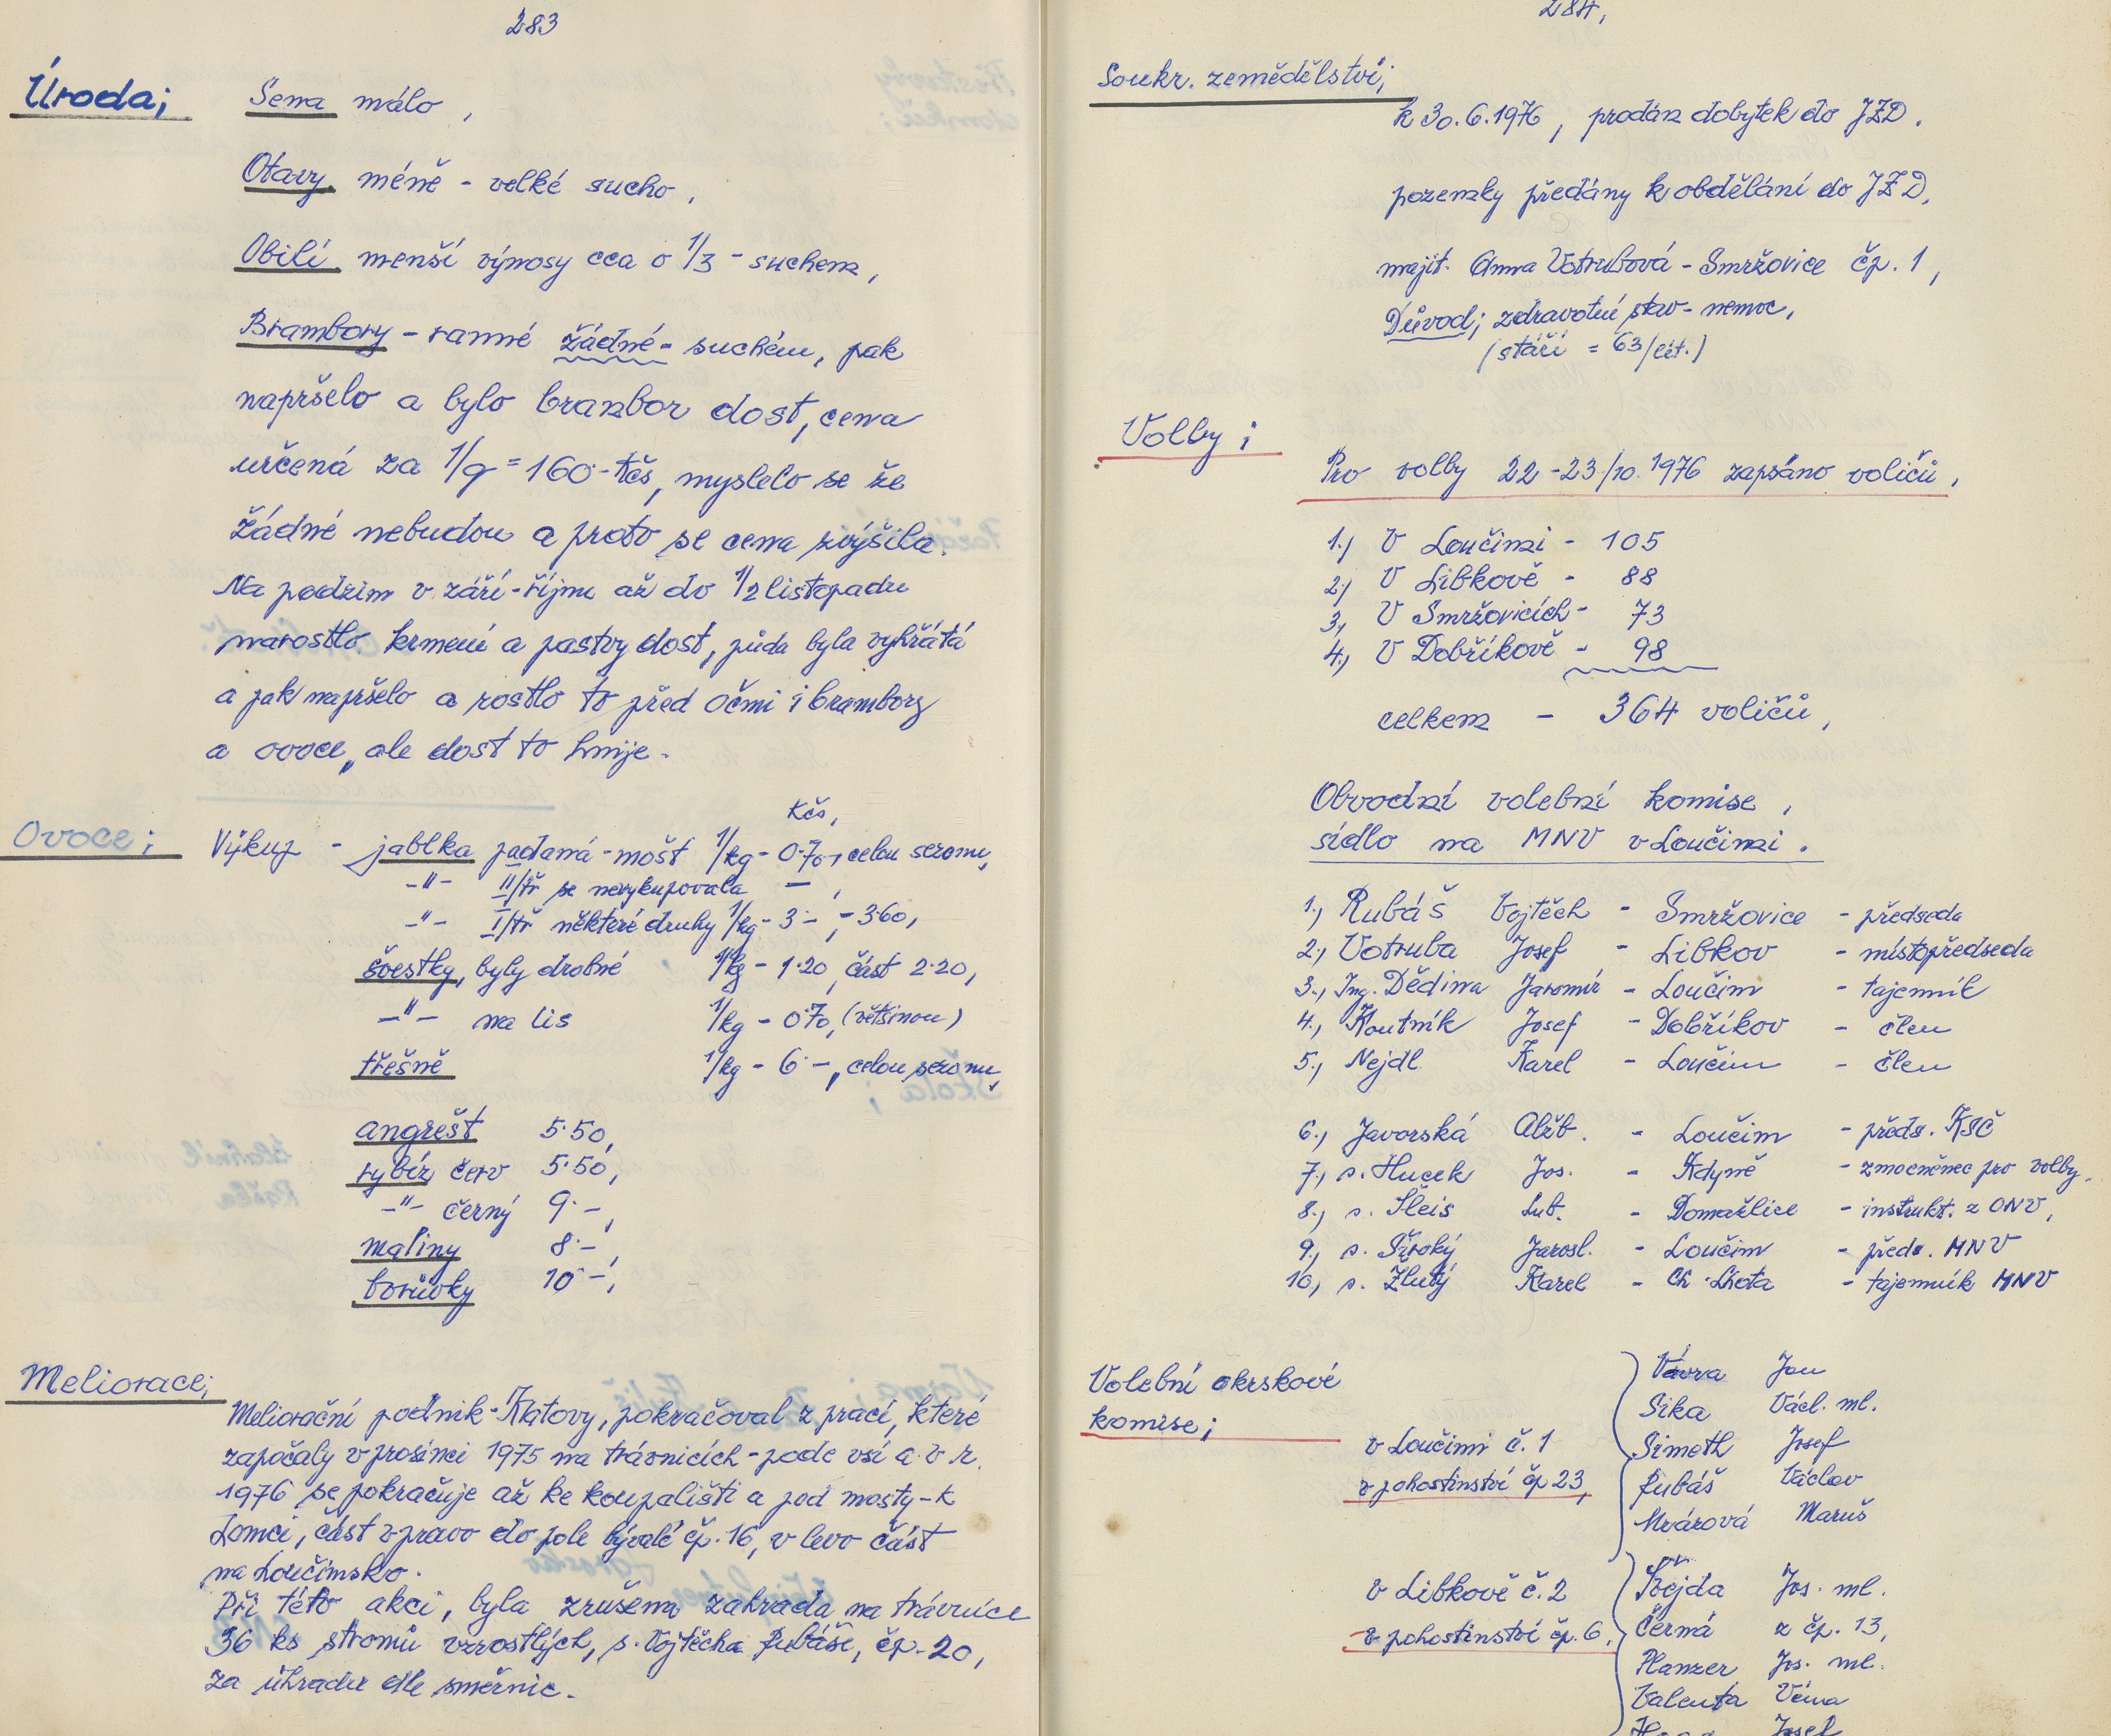 283
Úroda;
Sena málo,
Otavy méně - velké sucho,
Obilí menší výnosy cca o 1/3 - suchem,
Brambory - ranné žádné - suchém, pak
napršelo a bylo brambor dost, cena
určená za 1/q = 160·- Kčs, myslelo se že
žádné nebudou a proto se cena zvýšila.
Na podzim v září - říjnu až do 1/2 listopadu
narostlo krmení a pastvy dost, půda byla vyhřátá
a jak napršelo a rostlo to před očmi i brambory
a ovoce, ale dost to hnije.
Ovoce;
Kčs,
Výkup - jablka padaná - mošt 1/kg - 0·70, celou sezonu,
-"- II/tř se nevykupovala -,
-"- I/tř některé druhy 1/kg - 3·-, - 3·60,
švestky, byly drobné 1/kg - 1·20, část 2·20,
-"- na lis 1/kg - 0·70, (většinou)
třešně 1/kg - 6·-, celou sezonu,
angrešt 5·50,
rybíz červ 5·50,
-"- černý 9·-,
maliny 8·-,
borůvky 10·-,
Meliorace;
Meliorační podnik - Klatovy, pokračoval z prací, které
započaly v prosinci 1975 na trávnicích - pode vsí a v r.
1976 se pokračuje až ke koupališti a pod mosty - k
Lomci, část vpravo do pole bývalé čp. 16, v levo část
na Loučimsko.
Při této akci, byla zrušena zahrada na trávnice
36 ks stromů vzrostlých, s. Vojtěcha Rubáše, čp. 20,
za úhradu dle směrnic.
284,
Soukr. zemědělství;
k 30.6.1976, prodán dobytek do JZD.
pozemky předány k obdělání do JZD,
majit. Anna Votrubová - Smržovice čp. 1,
Důvod; zdravotní stav - nemoc,
(stáří = 63/let.)
Volby;
Pro volby 22 - 23/10. 1976 zapsáno voličů,
1.) V Loučimi - 105
2.) V Libkově - 88
3.) V Smržovicích - 73
4.) V Dobříkově - 98
celkem - 364 voličů,
Obvodní volební komise,
sídlo na MNV v Loučimi.
1.) Rubáš Vojtěch - Smržovice - předseda
2.) Votruba Josef - Libkov - místopředseda
3.) Ing. Dědina Jaromír - Loučim - tajemník
4.) Koutník Josef - Dobříkov - člen
5.) Nejdl Karel - Loučim - člen
6.) Javorská Alžb. - Loučim - předs. KSČ
7.) s. Hucek Jos. - Kdyně - zmocněnec pro volby,
8.) s. Šleis Lub. - Domažlice - instrukt. z ONV,
9.) s. Široký Jarosl. - Loučim - předs. MNV
10.) s. Žlutý Karel - Ch. Lhota - tajemník MNV
Volební okrskové
komise;
v Loučimi č. 1
v pohostinství čp 23,
Vávra Jan
Sika Václ. ml.
Simeth Josef
Rubáš Václav
Maruš
v Libkově č. 2
v pohostinství čp. 6,
Jos. ml.
Černá z čp. 13,
Planzer Jos. ml.
Valenta Véna
Josef